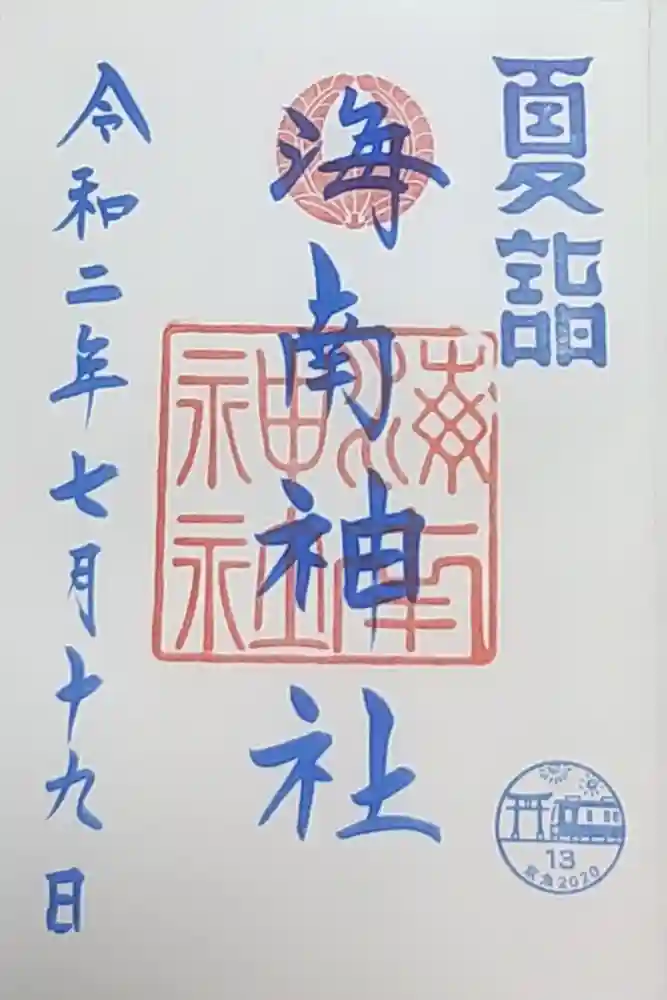 夏詣
海南神社
海南神社
令和二年七月十九日
13
京急2020